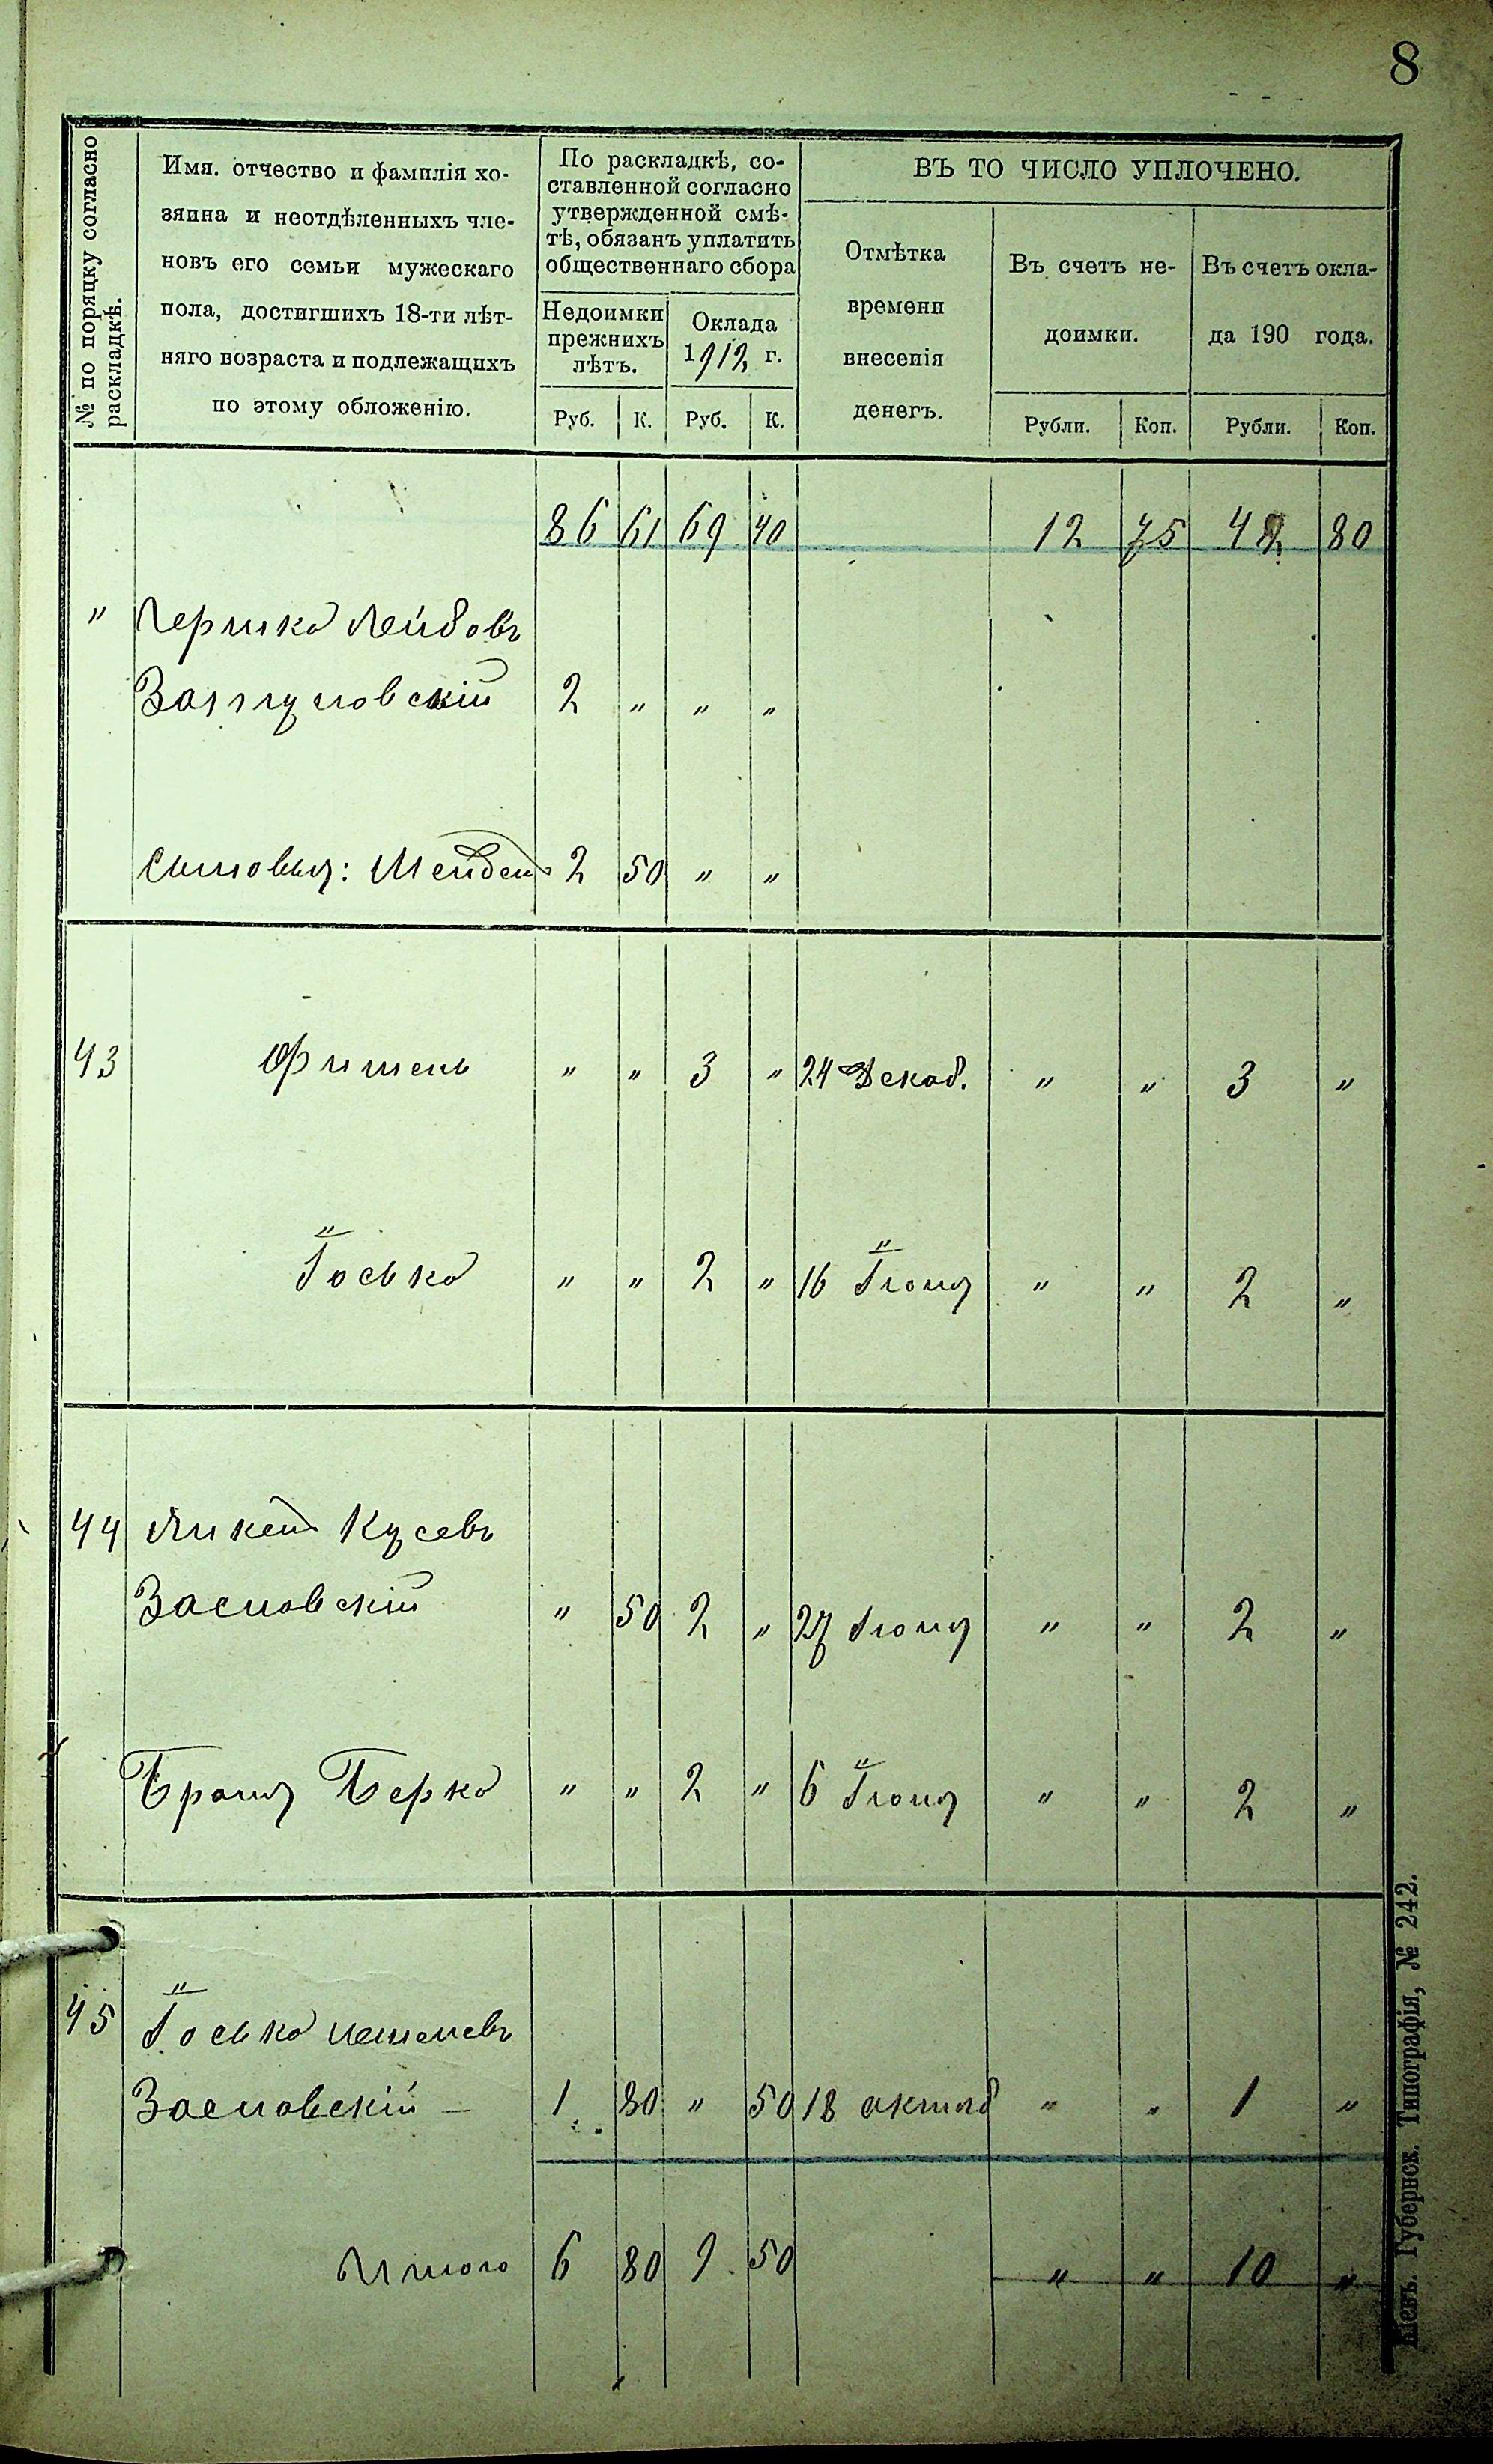 8
№ по поряцку согласно
раскладкѣ.
Имя. отчество и фамилія хо-
зяина и неотдѣленныхъ чле-
новъ его семьи мужескаго
пола, достигшихъ 18-ти лѣт-
няго возраста и подлежащихъ
по этому обложенію.
По раскладкѣ, со-
ставленной согласно
утвержденной смѣ-
тѣ, обязанъ уплатить
общественнаго сбора
Недоимки
прежнихъ
лѣтъ.
Оклада
1912 г.
Руб. К. Руб. К.
ВЪ ТО ЧИСЛО УПЛОЧЕНО.
Отмѣтка
времени
внесенія
денегъ.
Въ счетъ не-
доимки.
Въ счетъ окла-
да 190 года.
Рубли. Коп. Рубли. Коп.
86 61 69 40 12 75 42 80
" Гершко Лейбовъ
Заслуновскій 2 " " "
Сыновья: Шейдель 2 50 " "
43 Фишель " " 3 " 24 Декаб. " " 3 "
Іосько " " 2 " 16 Іюня " " 2 "
44 Янкель Кусевъ
Засловскій " 50 2 " 27 Іюня " " 2 "
Братъ Берко " " 2 " 6 Іюня " " 2 "
45 Іосько
Засловскій — 1 80 " 50 18 октяб " " 1 "
Итого 6 80 9 50 " " 10 "
Губернск. Типографія, № 242.